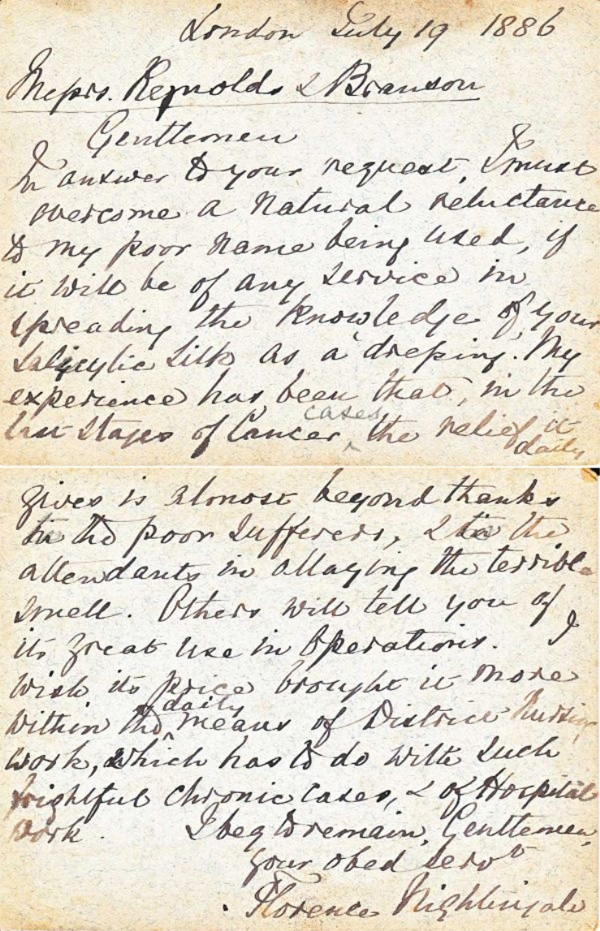 London July 19 1886
Messrs. Reynolds & Branson
Gentlemen
In answer to your request, I must
overcome a natural reluctance
to my poor name being used, if
it will be of any service in
spreading the knowledge of your
Salicylic Silk as a dressing. My
experience has been that, in the
cases
last stages of Cancer, the relief it
daily
gives is almost beyond thanks
to the poor Sufferers, & to the
attendants in allaying the terrible
smell. Others will tell you of
its great use in Operations. I
wish its price brought it more
daily
within the means of District Nursing
work, which has to do with such
frightful chronic cases, & of Hospital
work. I beg to remain, Gentlemen,
your obed servt
Florence Nightingale